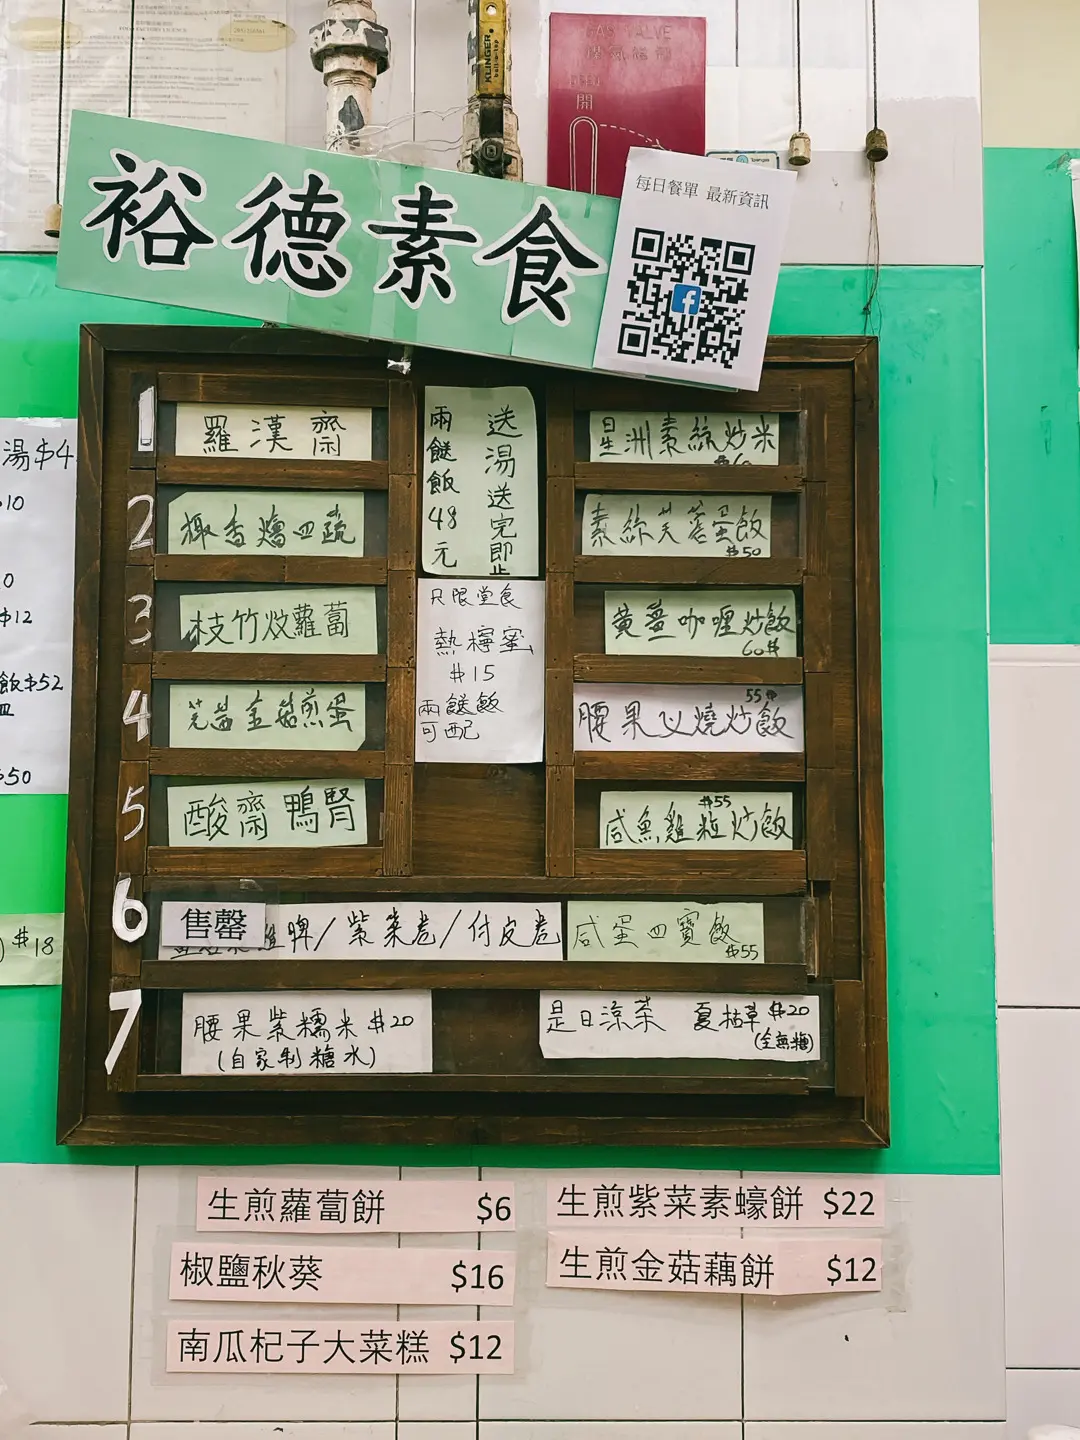 GAS VALVE
開
KLINGER
裕德素食
每日餐單 最新資訊
湯$4
10
0
$12
飯$52
$50
$18
1
羅漢齋
2
椒香燴四蔬
3
枝竹炆蘿蔔
4
芫茜金菇煎蛋
5
酸齋鴨腎
6
售罄
脾/紫菜卷/付皮卷
7
腰果紫糯米$20
(自家制糖水)
送湯送完即止
兩餸飯48元
只限堂食
熱檸蜜
$15
兩餸飯
可配
星洲素絲炒米
素絲芙蓉蛋飯
$50
黃薑咖喱炒飯
60$
55$
腰果乂燒炒飯
$55
咸魚雞粒炒飯
咸蛋四寶飯
$55
是日涼茶 夏枯草$20
(全無糖)
生煎蘿蔔餅 $6
生煎紫菜素蠔餅 $22
椒鹽秋葵 $16
生煎金菇藕餅 $12
南瓜杞子大菜糕 $12